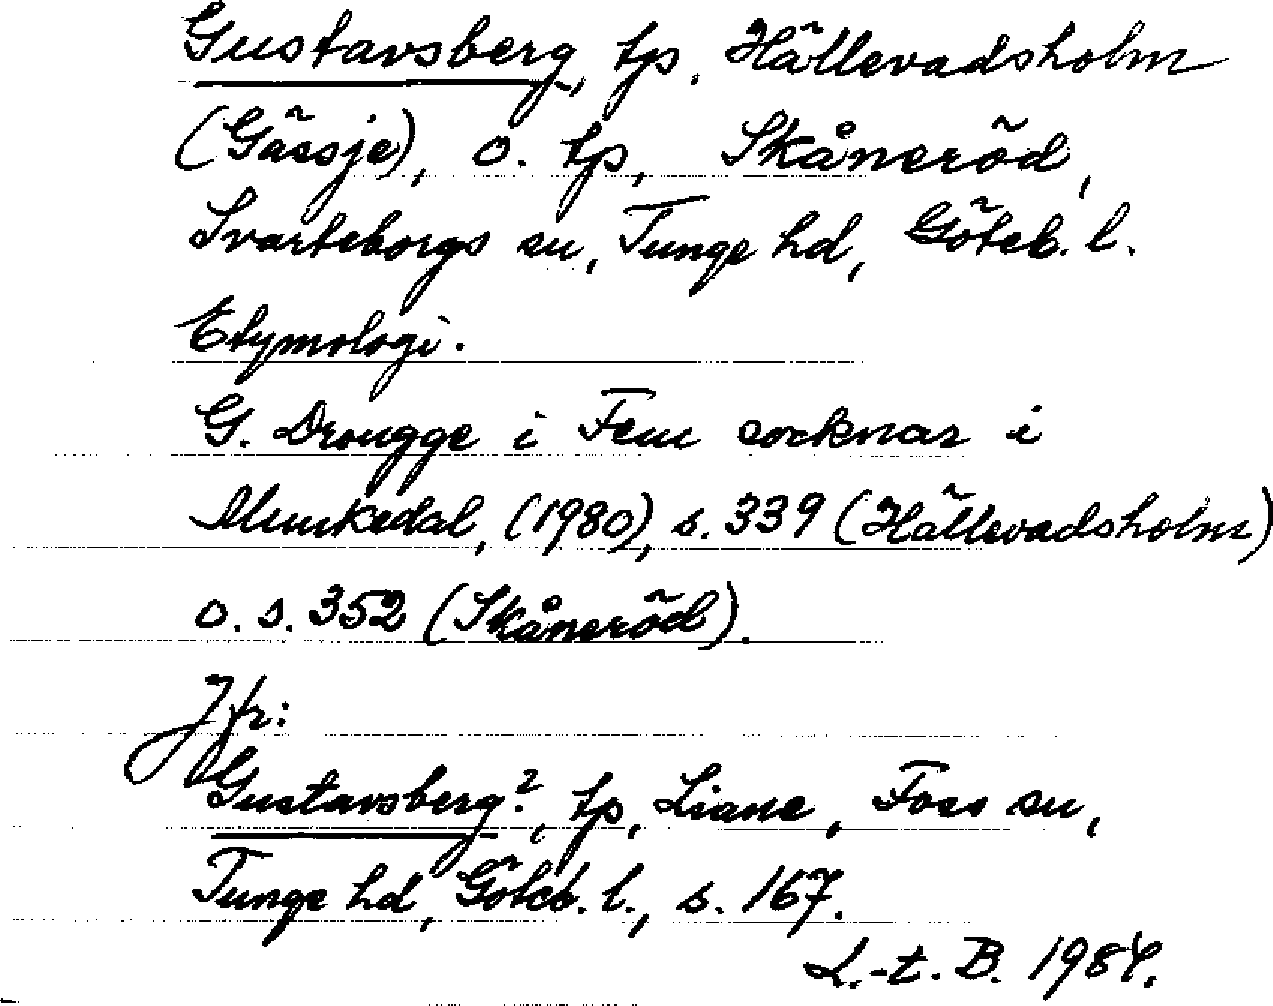 Gustavsberg, tp. Hällevadsholm
(Gässje), o. tp, Skåneröd,
Svarteborgs sn, Tunge hd, Göteb. l.
Etymologi.
G. Drougge i Fem socknar i
Munkedal, (1980), s. 339 (Hällevadsholm)
o. s. 352 (Skåneröd).
Jfr:
Gustavsberg?, tp, Liane, Foss sn,
Tunge hd, Göteb. l., s. 167.
L.-t. B. 1984.